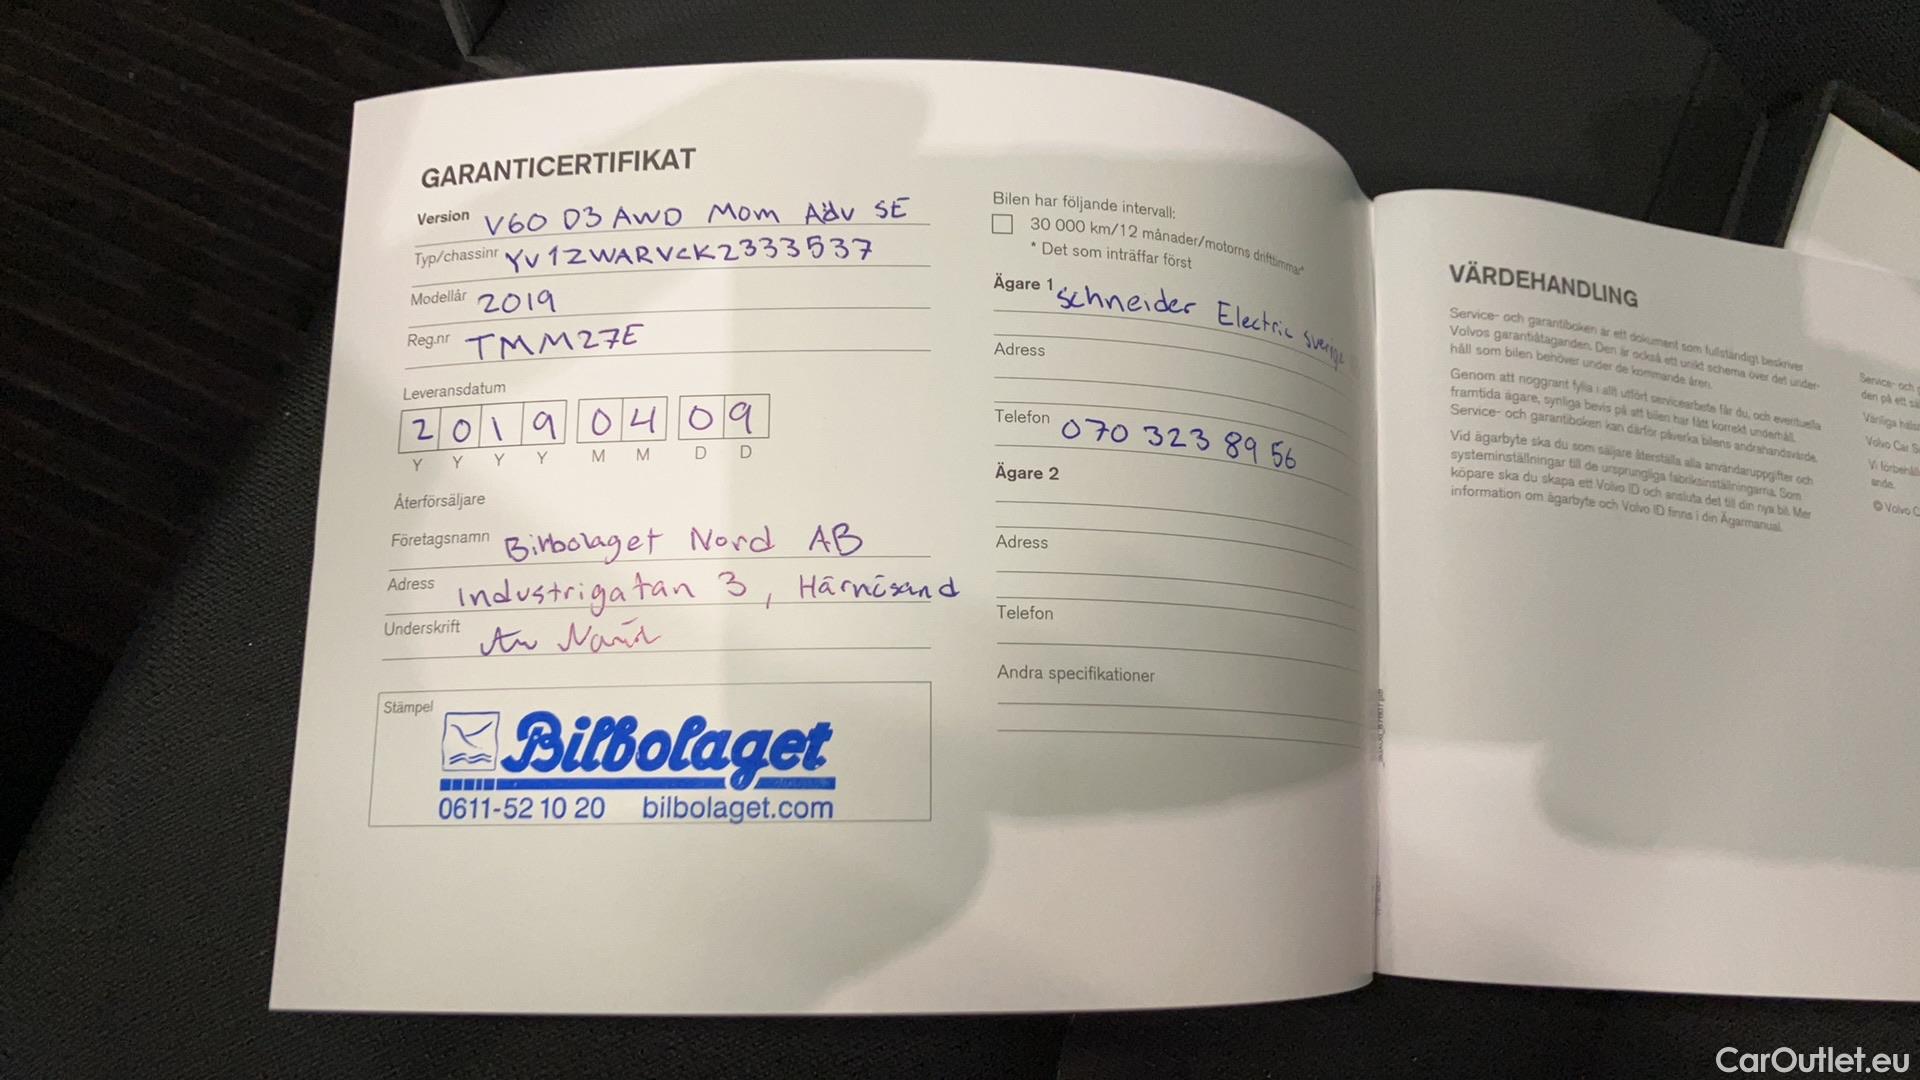 GARANTICERTIFIKAT
Version V60 D3 AWD Mom Adv SE
Typ/chassinr YV1ZWARVCK2333537
Modellår 2019
Reg.nr TMM27E
Leveransdatum
2019 04 09
Y Y Y Y M M D D
Återförsäljare
Företagsnamn Bilbolaget Nord AB
Adress Industrigatan 3, Härnösand
Underskrift
Stämpel
Bilbolaget
0611-52 10 20 bilbolaget.com
Bilen har följande intervall:
30 000 km/12 månader/motorns drifttimmar*
* Det som inträffar först
Ägare 1 Schneider Electric Sverige
Adress
Telefon 070 323 89 56
Ägare 2
Adress
Telefon
Andra specifikationer
VÄRDEHANDLING
Service- och garantiboken är ett dokument som fullständigt beskriver
Volvos garantiåtaganden. Den är också ett unikt schema över det under-
håll som bilen behöver under de kommande åren.
Genom att noggrant fylla i allt utfört servicearbete får du, och eventuella
framtida ägare, synliga bevis på att bilen har fått korrekt underhåll.
Service- och garantiboken kan därför påverka bilens andrahandsvärde.
Vid ägarbyte ska du som säljare återställa alla användaruppgifter och
systeminställningar till de ursprungliga fabriksinställningarna. Som
köpare ska du skapa ett Volvo ID och ansluta det till din nya bil. Mer
information om ägarbyte och Volvo ID finns i din Ägarmanual.
Service- och
den på ett
Vänliga
Volvo Car
Vi
ande.
© Volvo
CarOutlet.eu